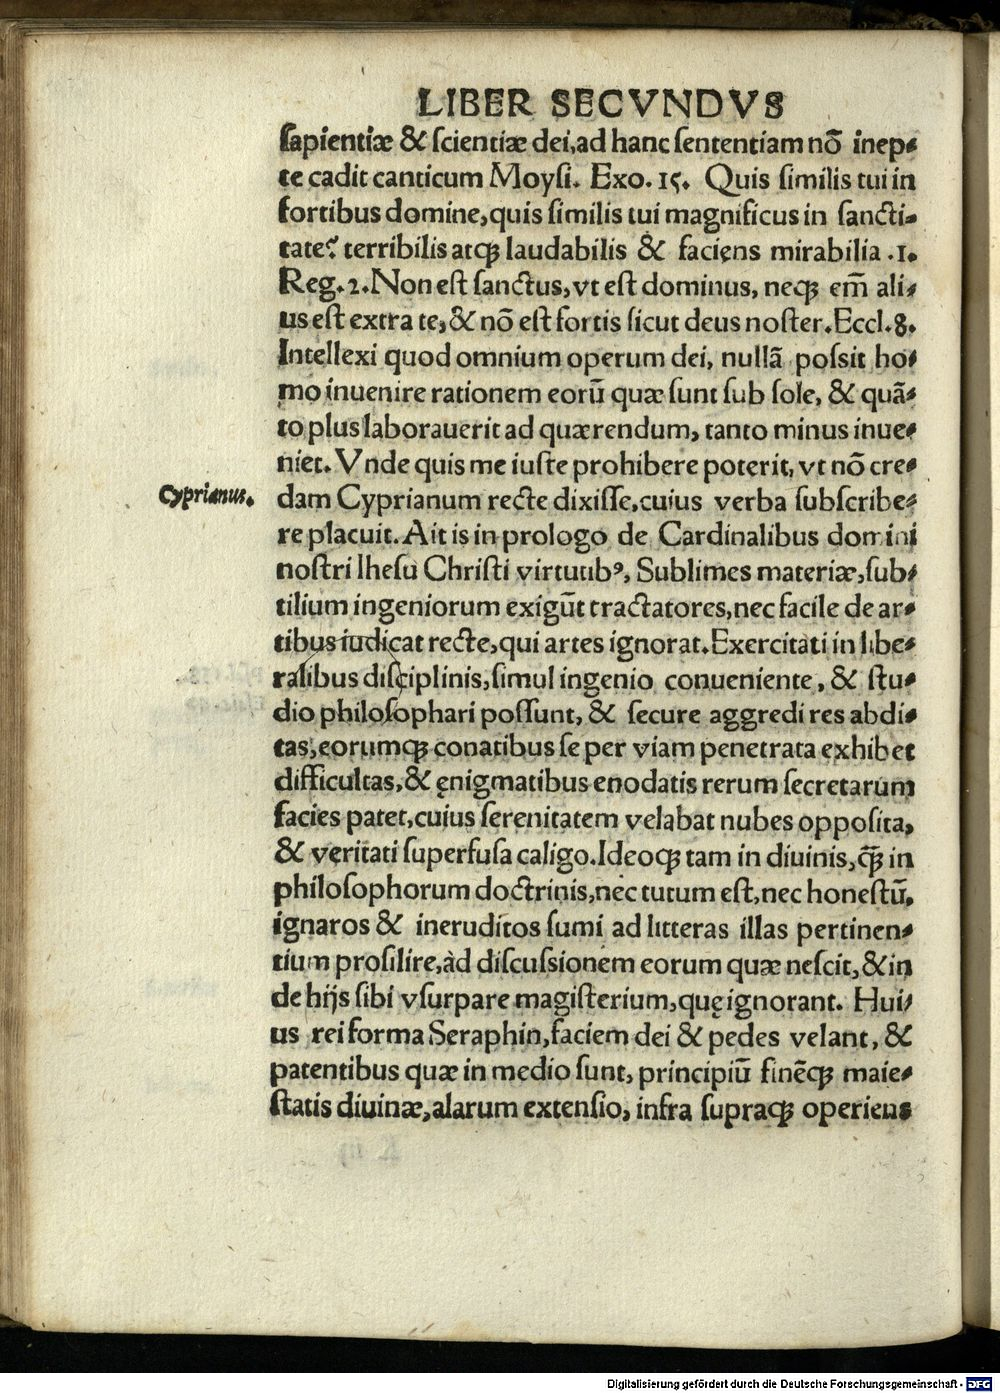 LIBER SECVNDVS
sapientiæ & scientiæ dei, ad hanc sententiam nõ inep-
te cadit canticum Moysi. Exo. 15. Quis similis tui in
fortibus domine, quis similis tui magnificus in sancti-
tate? terribilis atq; laudabilis & faciens mirabilia .1.
Reg. 2. Non est sanctus, vt est dominus, neq; em̃ ali-
us est extra te, & nõ est fortis sicut deus noster. Eccl. 8.
Intellexi quod omnium operum dei, nullã possit ho-
mo inuenire rationem eorũ quæ sunt sub sole, & quã-
to plus laborauerit ad quærendum, tanto minus inue-
niet. Vnde quis me iuste prohibere poterit, vt nõ cre-
Cyprianus.
dam Cyprianum recte dixisse, cuius verba subscribe-
re placuit. Ait is in prologo de Cardinalibus domini
nostri Ihesu Christi virtutibꝰ, Sublimes materiæ, sub-
tilium ingeniorum exigũt tractatores, nec facile de ar-
tibus iudicat recte, qui artes ignorat. Exercitati in libe-
ralibus disciplinis, simul ingenio conueniente, & stu-
dio philosophari possunt, & secure aggredi res abdi-
tas, eorumq; conatibus se per viam penetrata exhibet
difficultas, & ęnigmatibus enodatis rerum secretarum
facies patet, cuius serenitatem velabat nubes opposita,
& veritati superfusa caligo. Ideoq; tam in diuinis, q̃; in
philosophorum doctrinis, nec tutum est, nec honestũ,
ignaros & ineruditos sumi ad litteras illas pertinen-
tium prosilire, àd discussionem eorum quæ nescit, & in
de hijs sibi vsurpare magisterium, quę ignorant. Hui-
us rei forma Seraphin, faciem dei & pedes velant, &
patentibus quæ in medio sunt, principiũ finẽq; maie-
statis diuinæ, alarum extensio, infra supraq; operiens
Digitalisierung gefördert durch die Deutsche Forschungsgemeinschaft - DFG